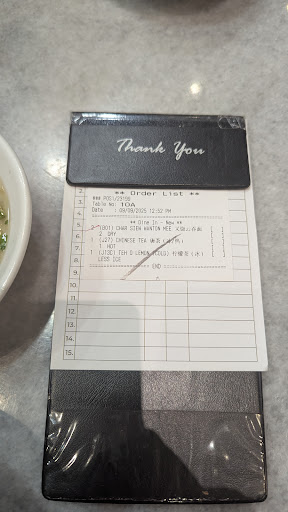 Thank You
** Order List **
### POS1/29198
Table No: 10A
Date : 09/09/2025 12:52 PM
** Dine In - New **
2 (B01) CHAR SIEW WANTON MEE 叉烧云吞面
2 DRY
1 (J27) CHINESE TEA
1 HOT
1 (J13C) TEH O LEMON (COLD) 柠檬茶 (冰)
LESS ICE
END
3.
4.
5.
6.
7.
8.
9.
10.
11.
12.
13.
14.
15.